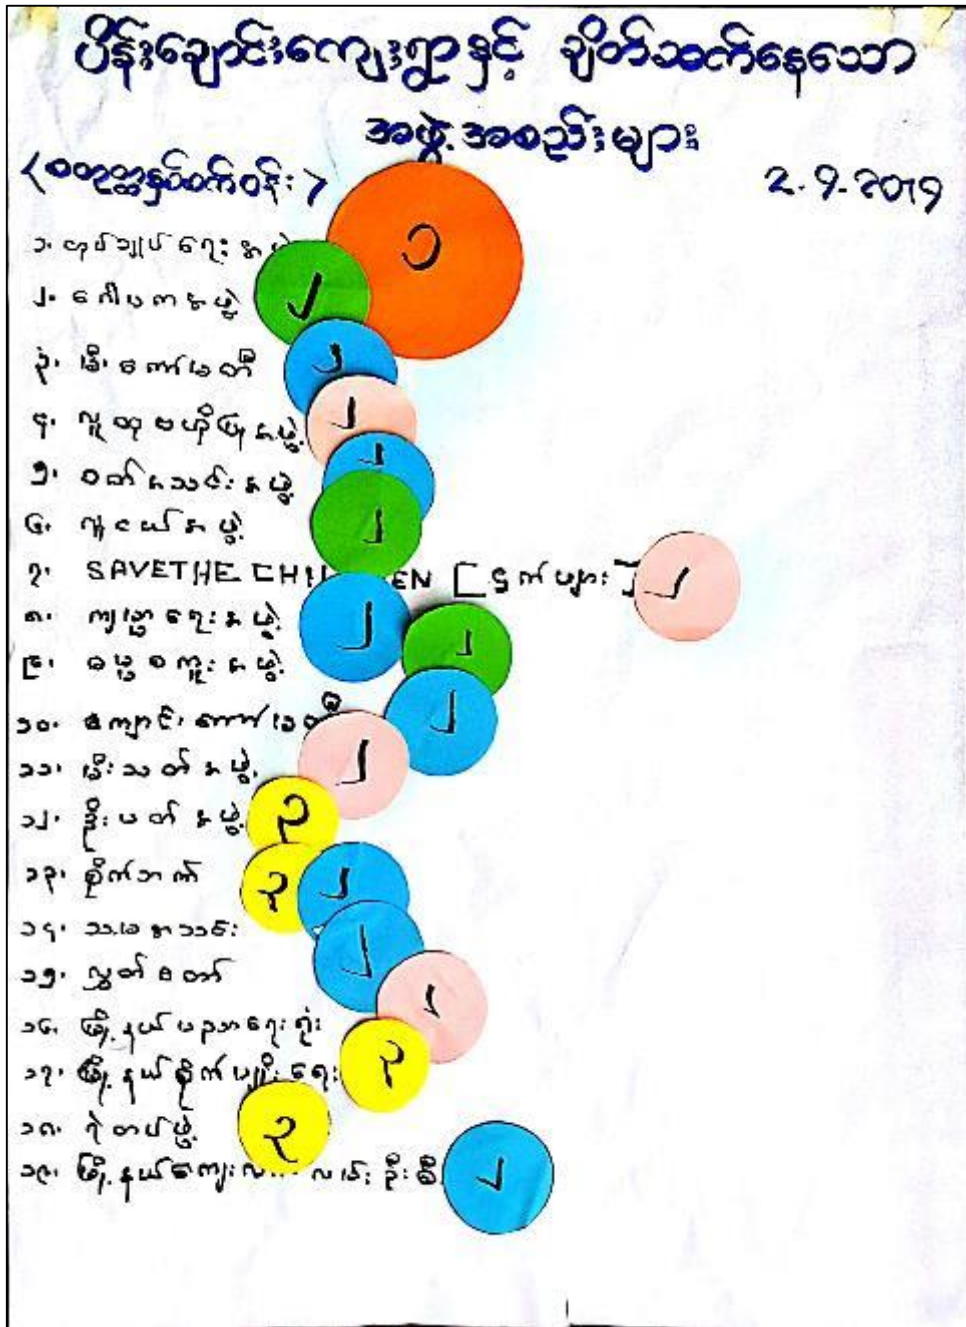 ပိန်းချောင်းကျေးရွာနှင့် ချိတ်ဆက်နေသော
အဖွဲ့အစည်းများ
2.9.2019
၁
၁. အုပ်ချုပ်ရေး
၂. ဂေါပကအဖွဲ့ ၂
၃. မီးကော်မတီ ၂
၄. အဖွဲ့ ၂
၅. ဝတ်အသင်းအဖွဲ့ ၂
၆. လူငယ်အဖွဲ့ ၂
၇. SAVETHE CHI EN [ ] ၂
၈. ကျန်းမာရေးအဖွဲ့ ၂
၉. ဓမ္မစကူးအဖွဲ့ ၂
၁၀. ကျောင်းကော်မတီ ၂
၁၁. မီးသတ်အဖွဲ့ ၂
၁၂. အဖွဲ့ ၃
၁၃. ၃ ၂
၁၄. ၂
၁၅. လွှတ်တော် ၂
၁၆. မြို့နယ်ပညာရေးရုံး
၁၇. မြို့နယ်စိုက်ပျိုးရေး ၃
၁၈. ရဲတပ်ဖွဲ့ ၃
၁၉. မြို့နယ်ကျေးလက် လမ်းဦးစီး ၂